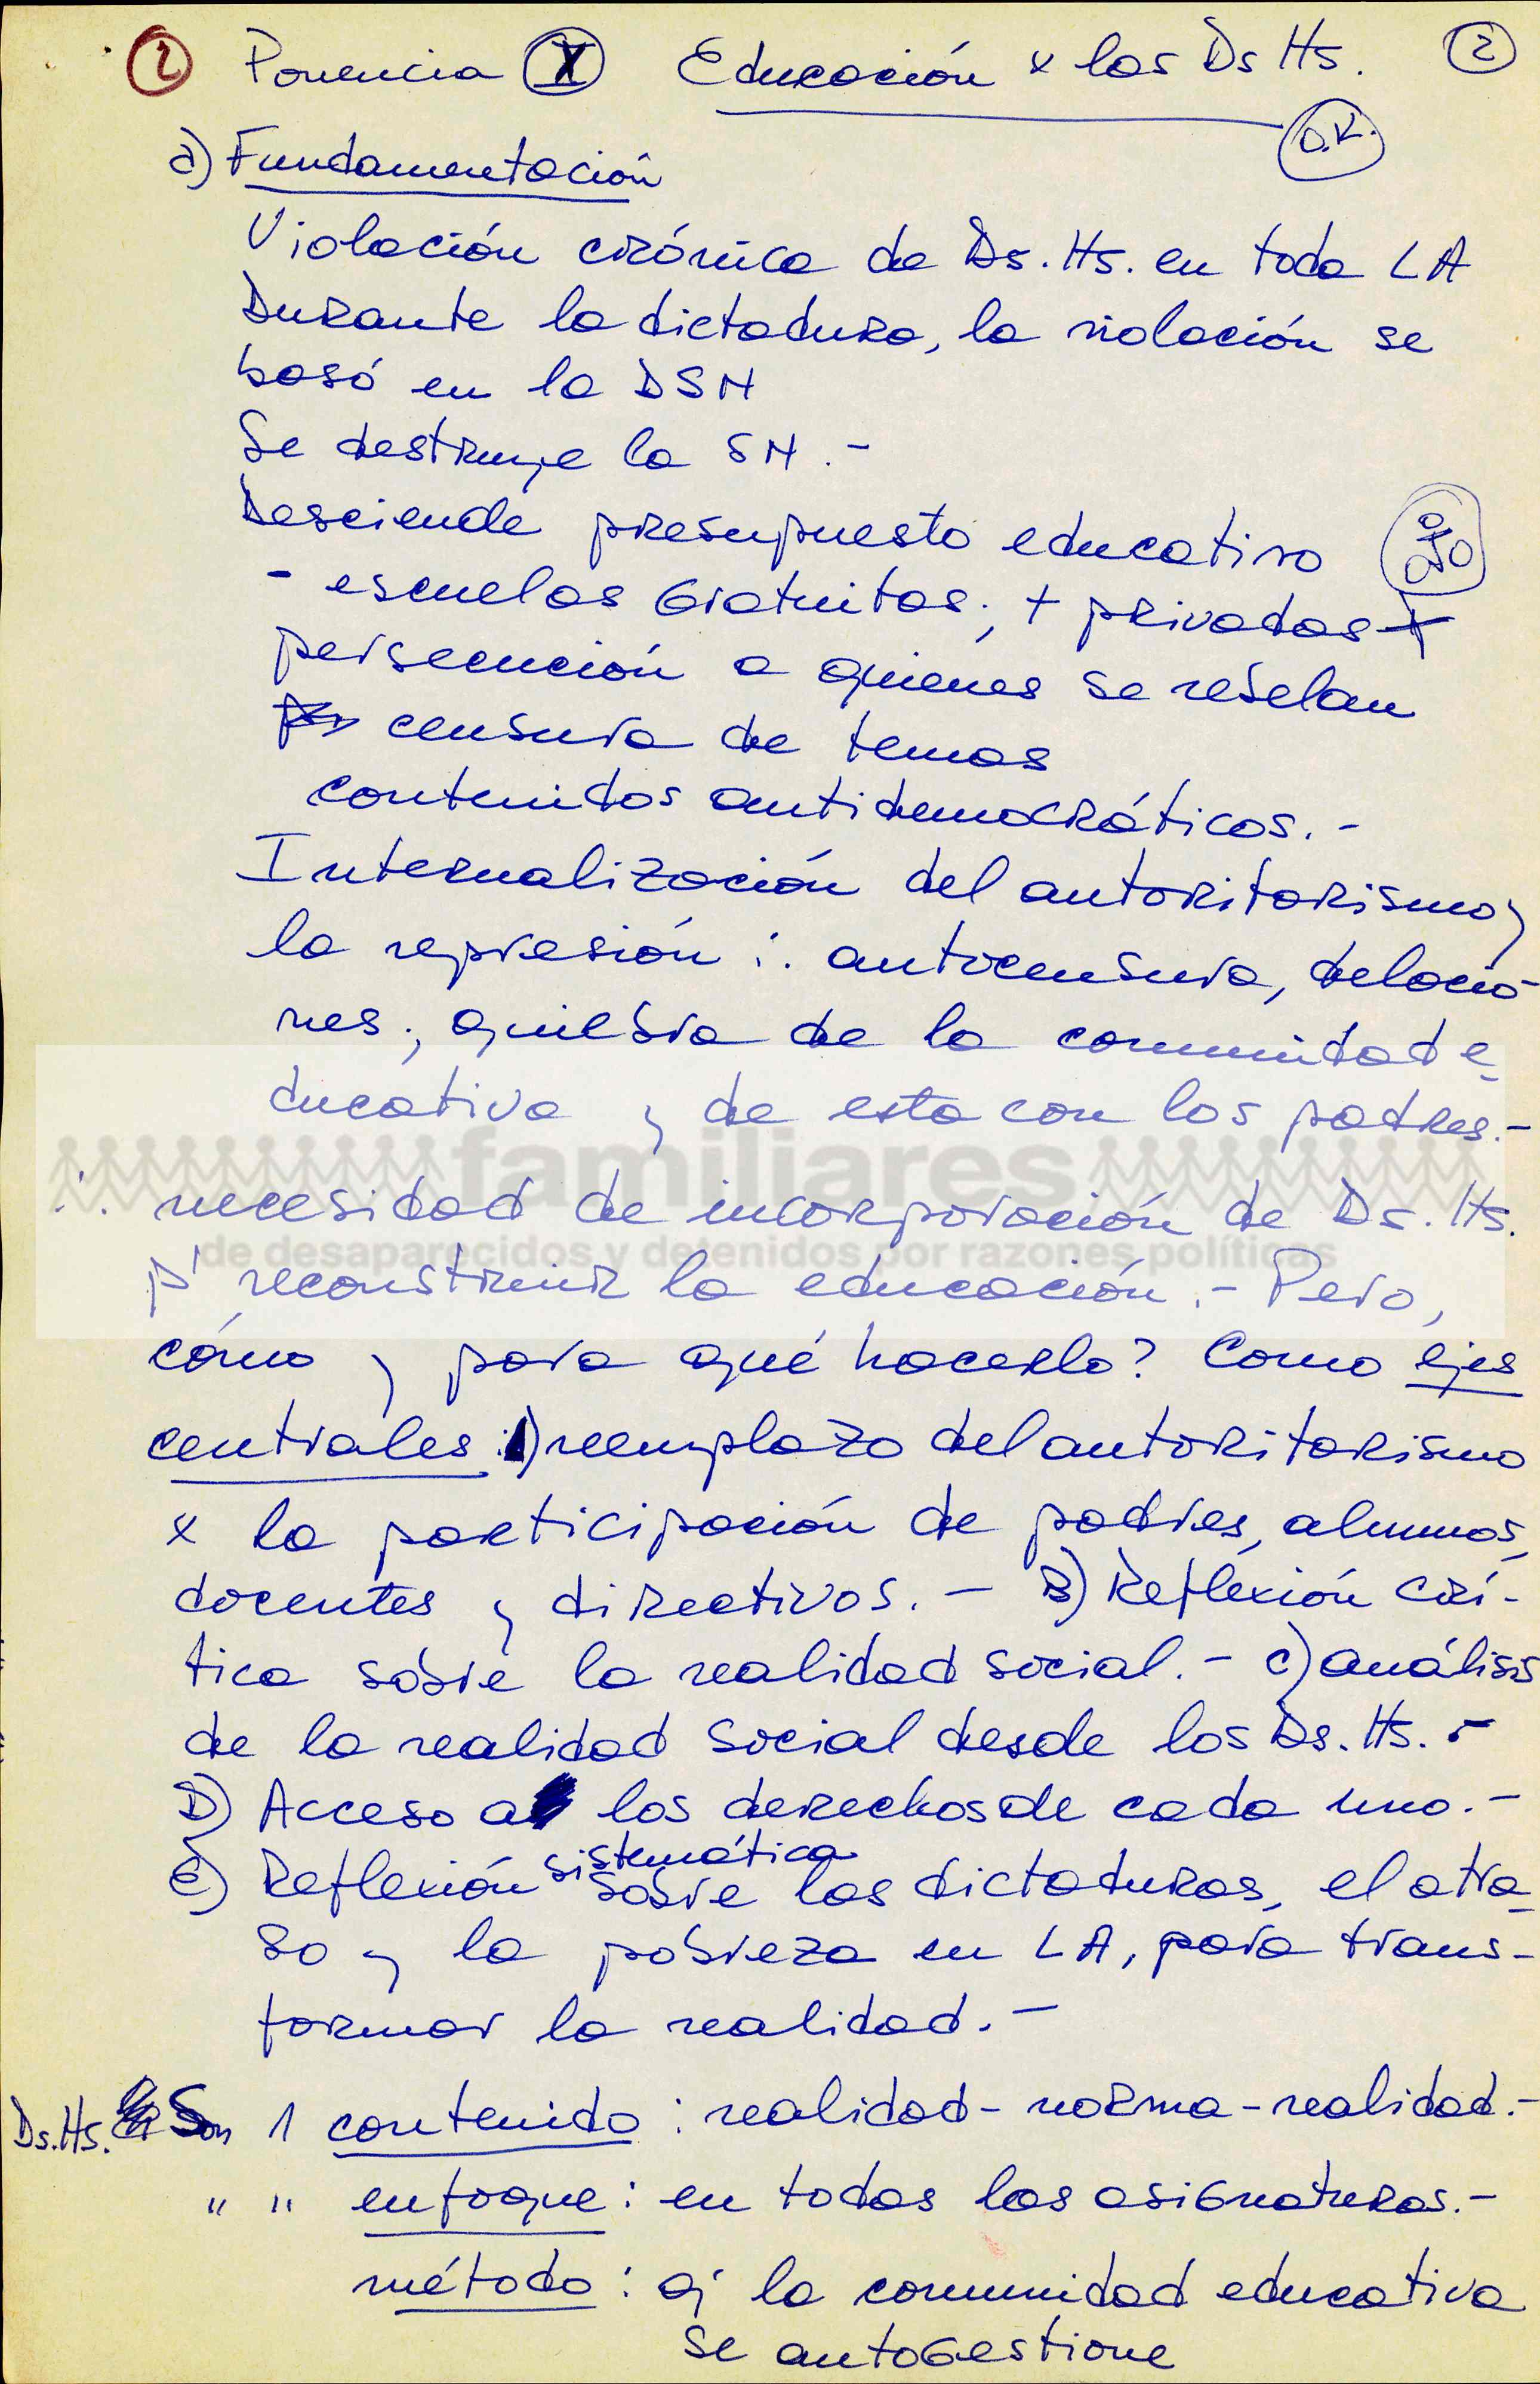 2 Ponencia X Educación x los Ds Hs. 2
O.K.
a) Fundamentación
Violación crónica de Ds. Hs. en toda LA
Durante la dictadura, la violación se
basó en la DSN
Se destruye la SN.-
Desciende presupuesto educativo ojo
- escuelas Gratuitas; + privadas +
persecución a quienes se rebelan
censura de temas
contenidos antidemocráticos.-
Internalización del autoritarismo y
la represión ∴ autocensura, delacio-
nes; quiebra de la comunidad e-
ducativa y de esta con los padres.-
familiares
∴ necesidad de incorporación de Ds. Hs.
de desaparecidos y detenidos por razones políticas
p' reconstruir la educación.- Pero,
cómo y para qué hacerlo? Como ejes
centrales: 1) reemplazo del autoritarismo
x la participación de padres, alumnos,
docentes y directivos.- B) Reflexión crí-
tica sobre la realidad social.- c) análisis
de la realidad social desde los Ds. Hs.-
D) Acceso a los derechos de cada uno.-
sistemática
e) Reflexión sobre las dictaduras, el atra-
so y la pobreza en LA, para trans-
formar la realidad.-
Ds. Hs. Son 1 contenido: realidad - norma - realidad.-
" " enfoque: en todas las asiGnaturas.-
método: q' la comunidad educativa
se autoGestione